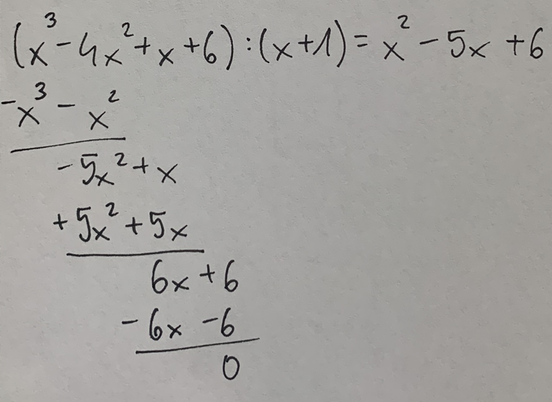 (x³ - 4x² + x + 6) : (x + 1) = x² - 5x + 6
-x³ - x²
-5x² + x
+5x² + 5x
6x + 6
-6x - 6
0